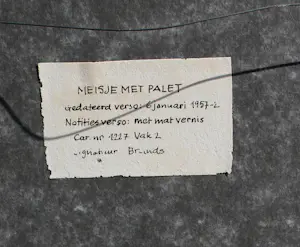 MEISJE MET PALET
Gedateerd verso: 6 januari 1957-2
Notities verso: met mat vernis
Car. nr 1217 Vak 2